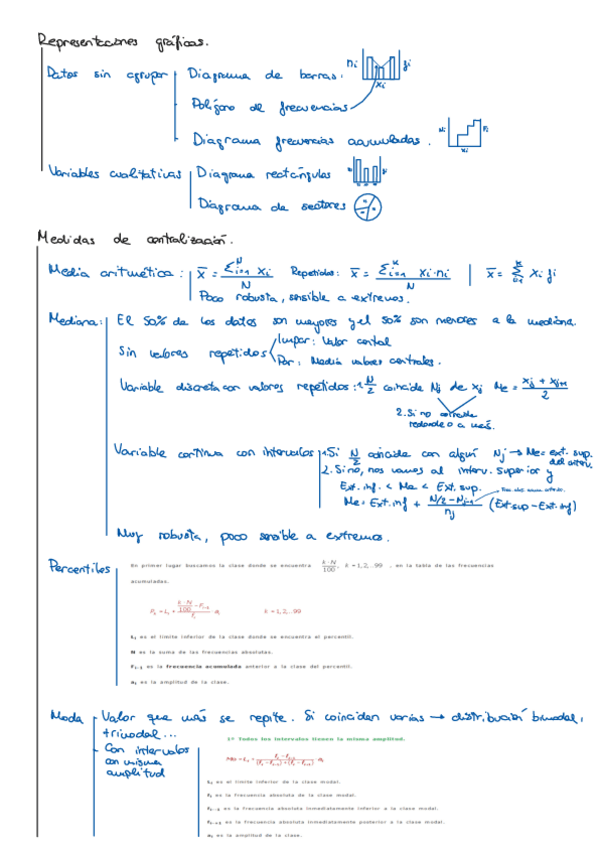 Representaciones gráficas.
Datos sin agrupar
Diagrama de barras.
ni
fi
xi
Polígono de frecuencias
Diagrama frecuencias acumuladas.
Ni
Fi
xi
Variables cualitativas
Diagrama rectángulos
Diagrama de sectores
Medidas de centralización.
Media aritmética: x̄ = Σᵢ₌₁ᴺ xi / N Repetidos: x̄ = Σᵢ₌₁ᵏ xi·ni / N | x̄ = Σᵢ₌₁ᵏ xi fi
Poco robusta, sensible a extremos.
Mediana: El 50% de los datos son mayores y el 50% son menores a la mediana.
Sin valores repetidos
Impar: valor central
Par: Media valores centrales.
Variable discreta con valores repetidos: 1. N/2 coincide Nj de xj Me = (xj + xj+1)/2
2. Si no coincide
redondeo a más.
Variable continua con intervalos
1. Si N/2 coincide con algún Nj → Me = ext. sup.
del interv.
2. Si no, nos vamos al interv. superior y
Ext. inf. < Me < Ext. sup.
Me = Ext. inf + (N/2 - Nj-1)/nj (Ext sup - Ext. inf)
Muy robusta, poco sensible a extremos.
Percentiles
En primer lugar buscamos la clase donde se encuentra k·N/100, k = 1,2,..99 , en la tabla de las frecuencias
acumuladas.
Pk = Li + (k·N/100 - Fi-1)/fi · ai k = 1,2,..99
Li es el límite inferior de la clase donde se encuentra el percentil.
N es la suma de las frecuencias absolutas.
Fi-1 es la frecuencia acumulada anterior a la clase del percentil.
ai es la amplitud de la clase.
Moda
Valor que más se repite. Si coinciden varias → distribución bimodal,
trimodal...
Con intervalos
con misma
amplitud
1º Todos los intervalos tienen la misma amplitud.
Mo = Li + (fi - fi-1)/((fi - fi-1) + (fi - fi+1)) · ai
Li es el límite inferior de la clase modal.
fi es la frecuencia absoluta de la clase modal.
fi-1 es la frecuencia absoluta inmediatamente inferior a la clase modal.
fi+1 es la frecuencia absoluta inmediatamente posterior a la clase modal.
ai es la amplitud de la clase.